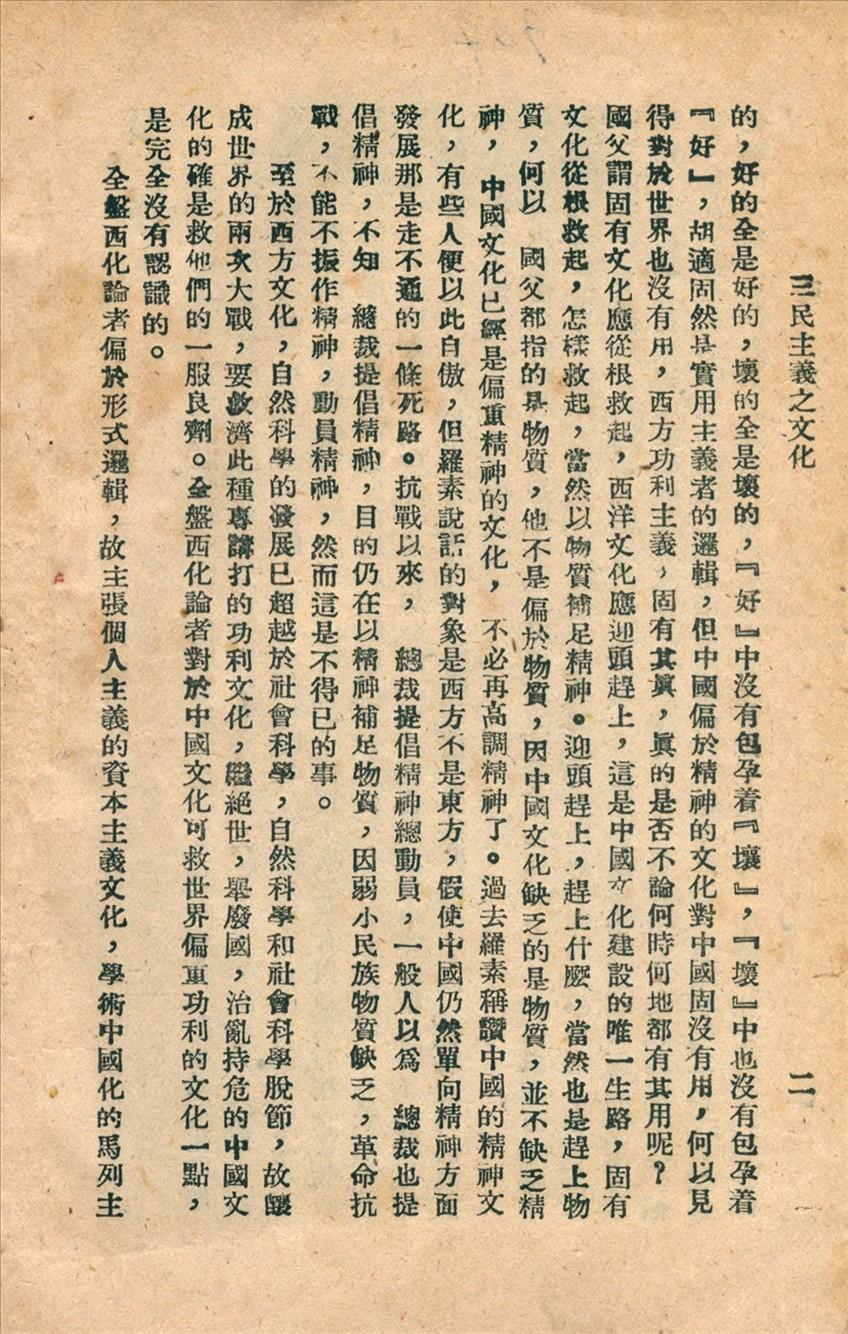 三民主義之文化
二
的，好的全是好的，壞的全是壞的，『好』中沒有包孕着『壞』，『壞』中也沒有包孕着
『好』，胡適固然是實用主義者的邏輯，但中國偏於精神的文化對中國固沒有用，何以見
得對於世界也沒有用，西方功利主義，固有其眞，眞的是否不論何時何地都有其用呢？
國父謂固有文化應從根救起，西洋文化應迎頭趕上，這是中國文化建設的唯一生路，固有
文化從根救起，怎樣救起，當然以物質補足精神。迎頭趕上，趕上什麼，當然也是趕上物
質，何以　國父都指的是物質，他不是偏於物質，因中國文化缺乏的是物質，並不缺乏精
神，中國文化已經是偏重精神的文化，不必再高調精神了。過去羅素稱讚中國的精神文
化，有些人便以此自傲，但羅素說話的對象是西方不是東方，假使中國仍然單向精神方面
發展那是走不通的一條死路。抗戰以來，　總裁提倡精神總動員，一般人以爲　總裁也提
倡精神，不知　總裁提倡精神，目的仍在以精神補足物質，因弱小民族物質缺乏，革命抗
戰，不能不振作精神，動員精神，然而這是不得已的事。
至於西方文化，自然科學的發展已超越於社會科學，自然科學和社會科學脫節，故釀
成世界的兩次大戰，要救濟此種專講打的功利文化，繼絕世，舉廢國，治亂持危的中國文
化的確是救他們的一服良劑。全盤西化論者對於中國文化可救世界偏重功利的文化一點，
是完全沒有認識的。
全盤西化論者偏於形式邏輯，故主張個人主義的資本主義文化，學術中國化的馬列主